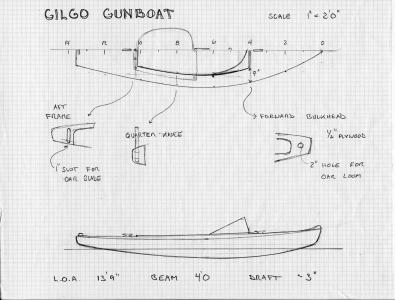 GILGO GUNBOAT
SCALE 1" = 2'0"
14 12 10 8 6 4 2 0
9"
AFT FRAME
QUARTER-KNEE
FORWARD BULKHEAD
1/2" PLYWOOD
1" SLOT FOR
OAR BLADE
2" HOLE FOR
OAR LOOM
L.O.A. 13'9" BEAM 4'0 DRAFT ~3"